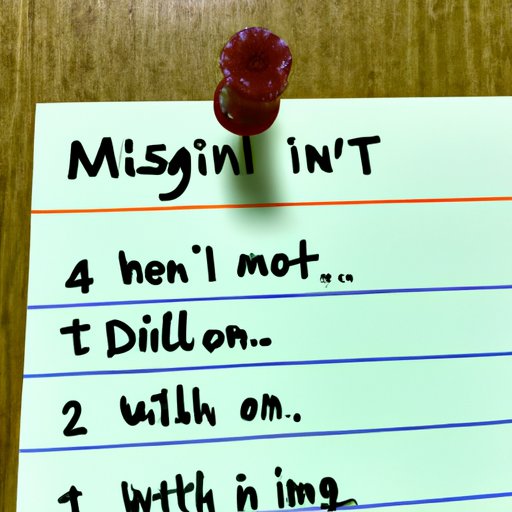 Misginl iN'T
4 hen'l mot...
t Dillon...
2 willh om..
1 Wtth in img